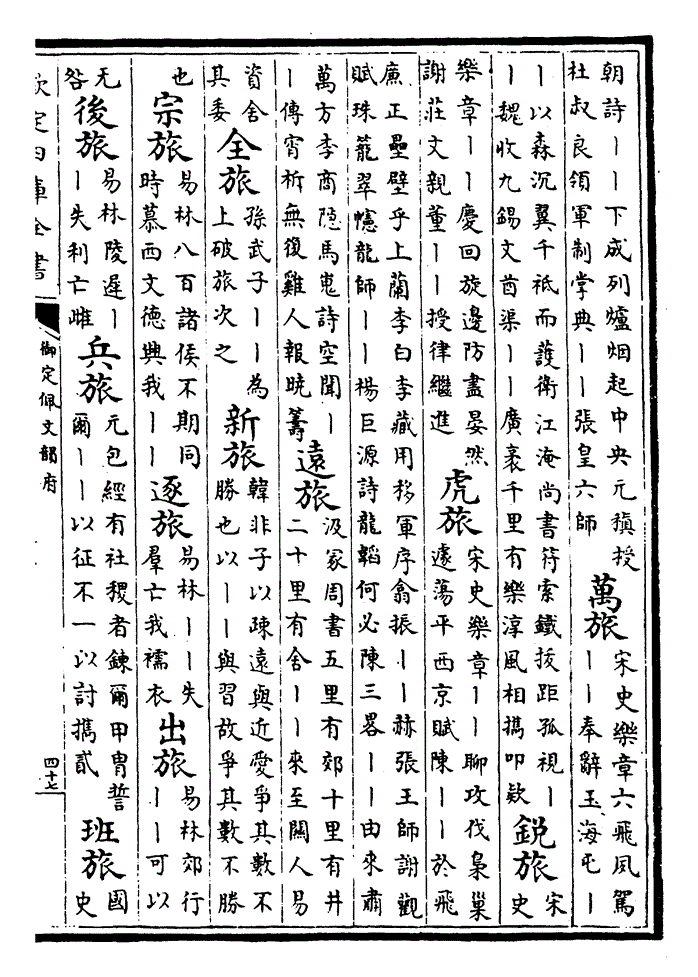 朝詩丨丨下成列爐烟起中央元稹授　萬旅　宋史樂章六飛夙駕
社叔良領軍制掌典丨丨張皇六師　丨丨奉辭玉海屯丨
丨以森沉翼千祗而護衛江淹尚書符索鐵拔距孤視丨　鋭旅　宋
丨魏收九錫文酋渠丨丨廣袤千里有樂淳風相攜叩欵　史
樂章丨丨慶回旋邊防盡晏然　虎旅　宋史樂章丨丨聊攻伐梟巢
謝莊文親董丨丨授律繼進　遽蕩平西京賦陳丨丨於飛
廉正壘壁乎上蘭李白李藏用移軍序翕振丨丨赫張王師謝觀
賦珠籠翠幰龍師丨丨楊巨源詩龍韜何必陳三畧丨丨由來肅
萬方李商隱馬嵬詩空聞丨　遠旅　汲冢周書五里有郊十里有井
丨傳宵柝無復雞人報曉籌　二十里有舍丨丨來至關人易
資舍　全旅　孫武子丨丨為　新旅　韓非子以疎遠與近愛爭其數不
其委　上破旅次之　勝也以丨丨與習故爭其數不勝
也　宗旅　易林八百諸侯不期同　逐旅　易林丨丨失　出旅　易林郊行
時慕西文德興我丨丨　羣亡我襦衣　丨丨可以
无　後旅　易林陵遲丨　兵旅　元包經有社稷者鍊爾甲冑誓　班旅　國
咎　丨失利亡雌　爾丨丨以征不一以討攜貳　史
欽定四庫全書
御定佩文韻府
四十七